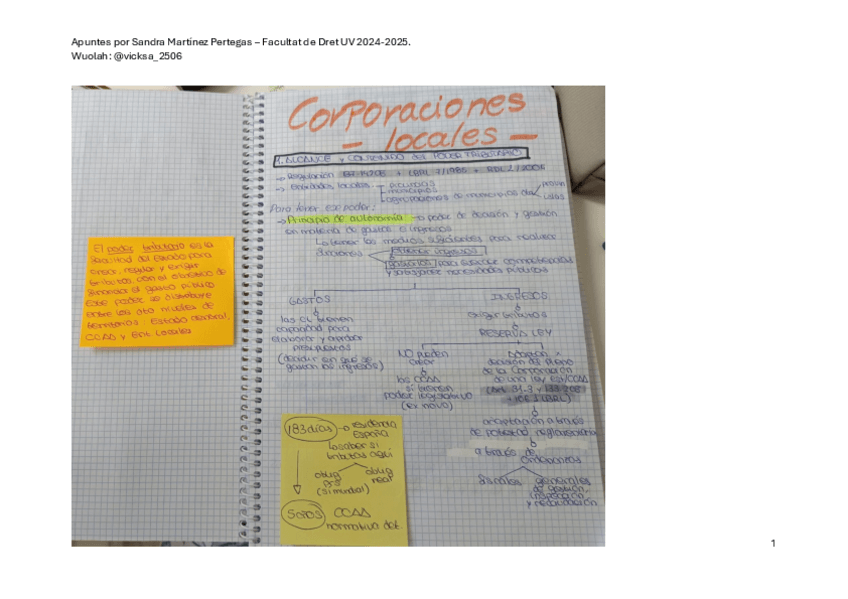 Apuntes por Sandra Martínez Pertegas – Facultat de Dret UV 2024-2025.
Wuolah: @vicksa_2506
Corporaciones
- locales -
1. ALCANCE y CONTENIDO del PODER TRIBUTARIO
→ Regulación
→ Entidades locales
provincias
municipios
agrupaciones de municipios
Para tener ese poder:
→ Principio de autonomía → poder de decisión y gestión
en materia de gastos e ingresos
tener los medios suficientes para realizar
funciones
obtener ingresos
gastarlos para ejecutar competencias
y satisfacer necesidades públicas
GASTOS
las CL tienen
capacidad para
elaborar y aprobar
presupuestos
(decidir en qué se
gastan los ingresos)
INGRESOS
exigir tributos
RESERVA LEY
NO pueden
crear
las CCAA
sí tienen
poder legislativo
(ex novo)
Adoptan x
decisión del pleno
de la Corporación
de una ley Est/CCAA
adaptación a través
de potestad reglamentaria
a través de
ordenanzas
fiscales
generales
de gestión,
inspección
y recaudación
El poder tributario es la
facultad del Estado para
crear, regular y exigir
tributos, con el objetivo de
financiar el gasto público
Este poder se distribuye
entre los niveles de
territorios: Estado central,
CCAA y Ent. Locales
183 días → residencia
España
saber si
tributas aquí
oblig
pers
(si mundial)
oblig
real
CCAA
normativa det.
1